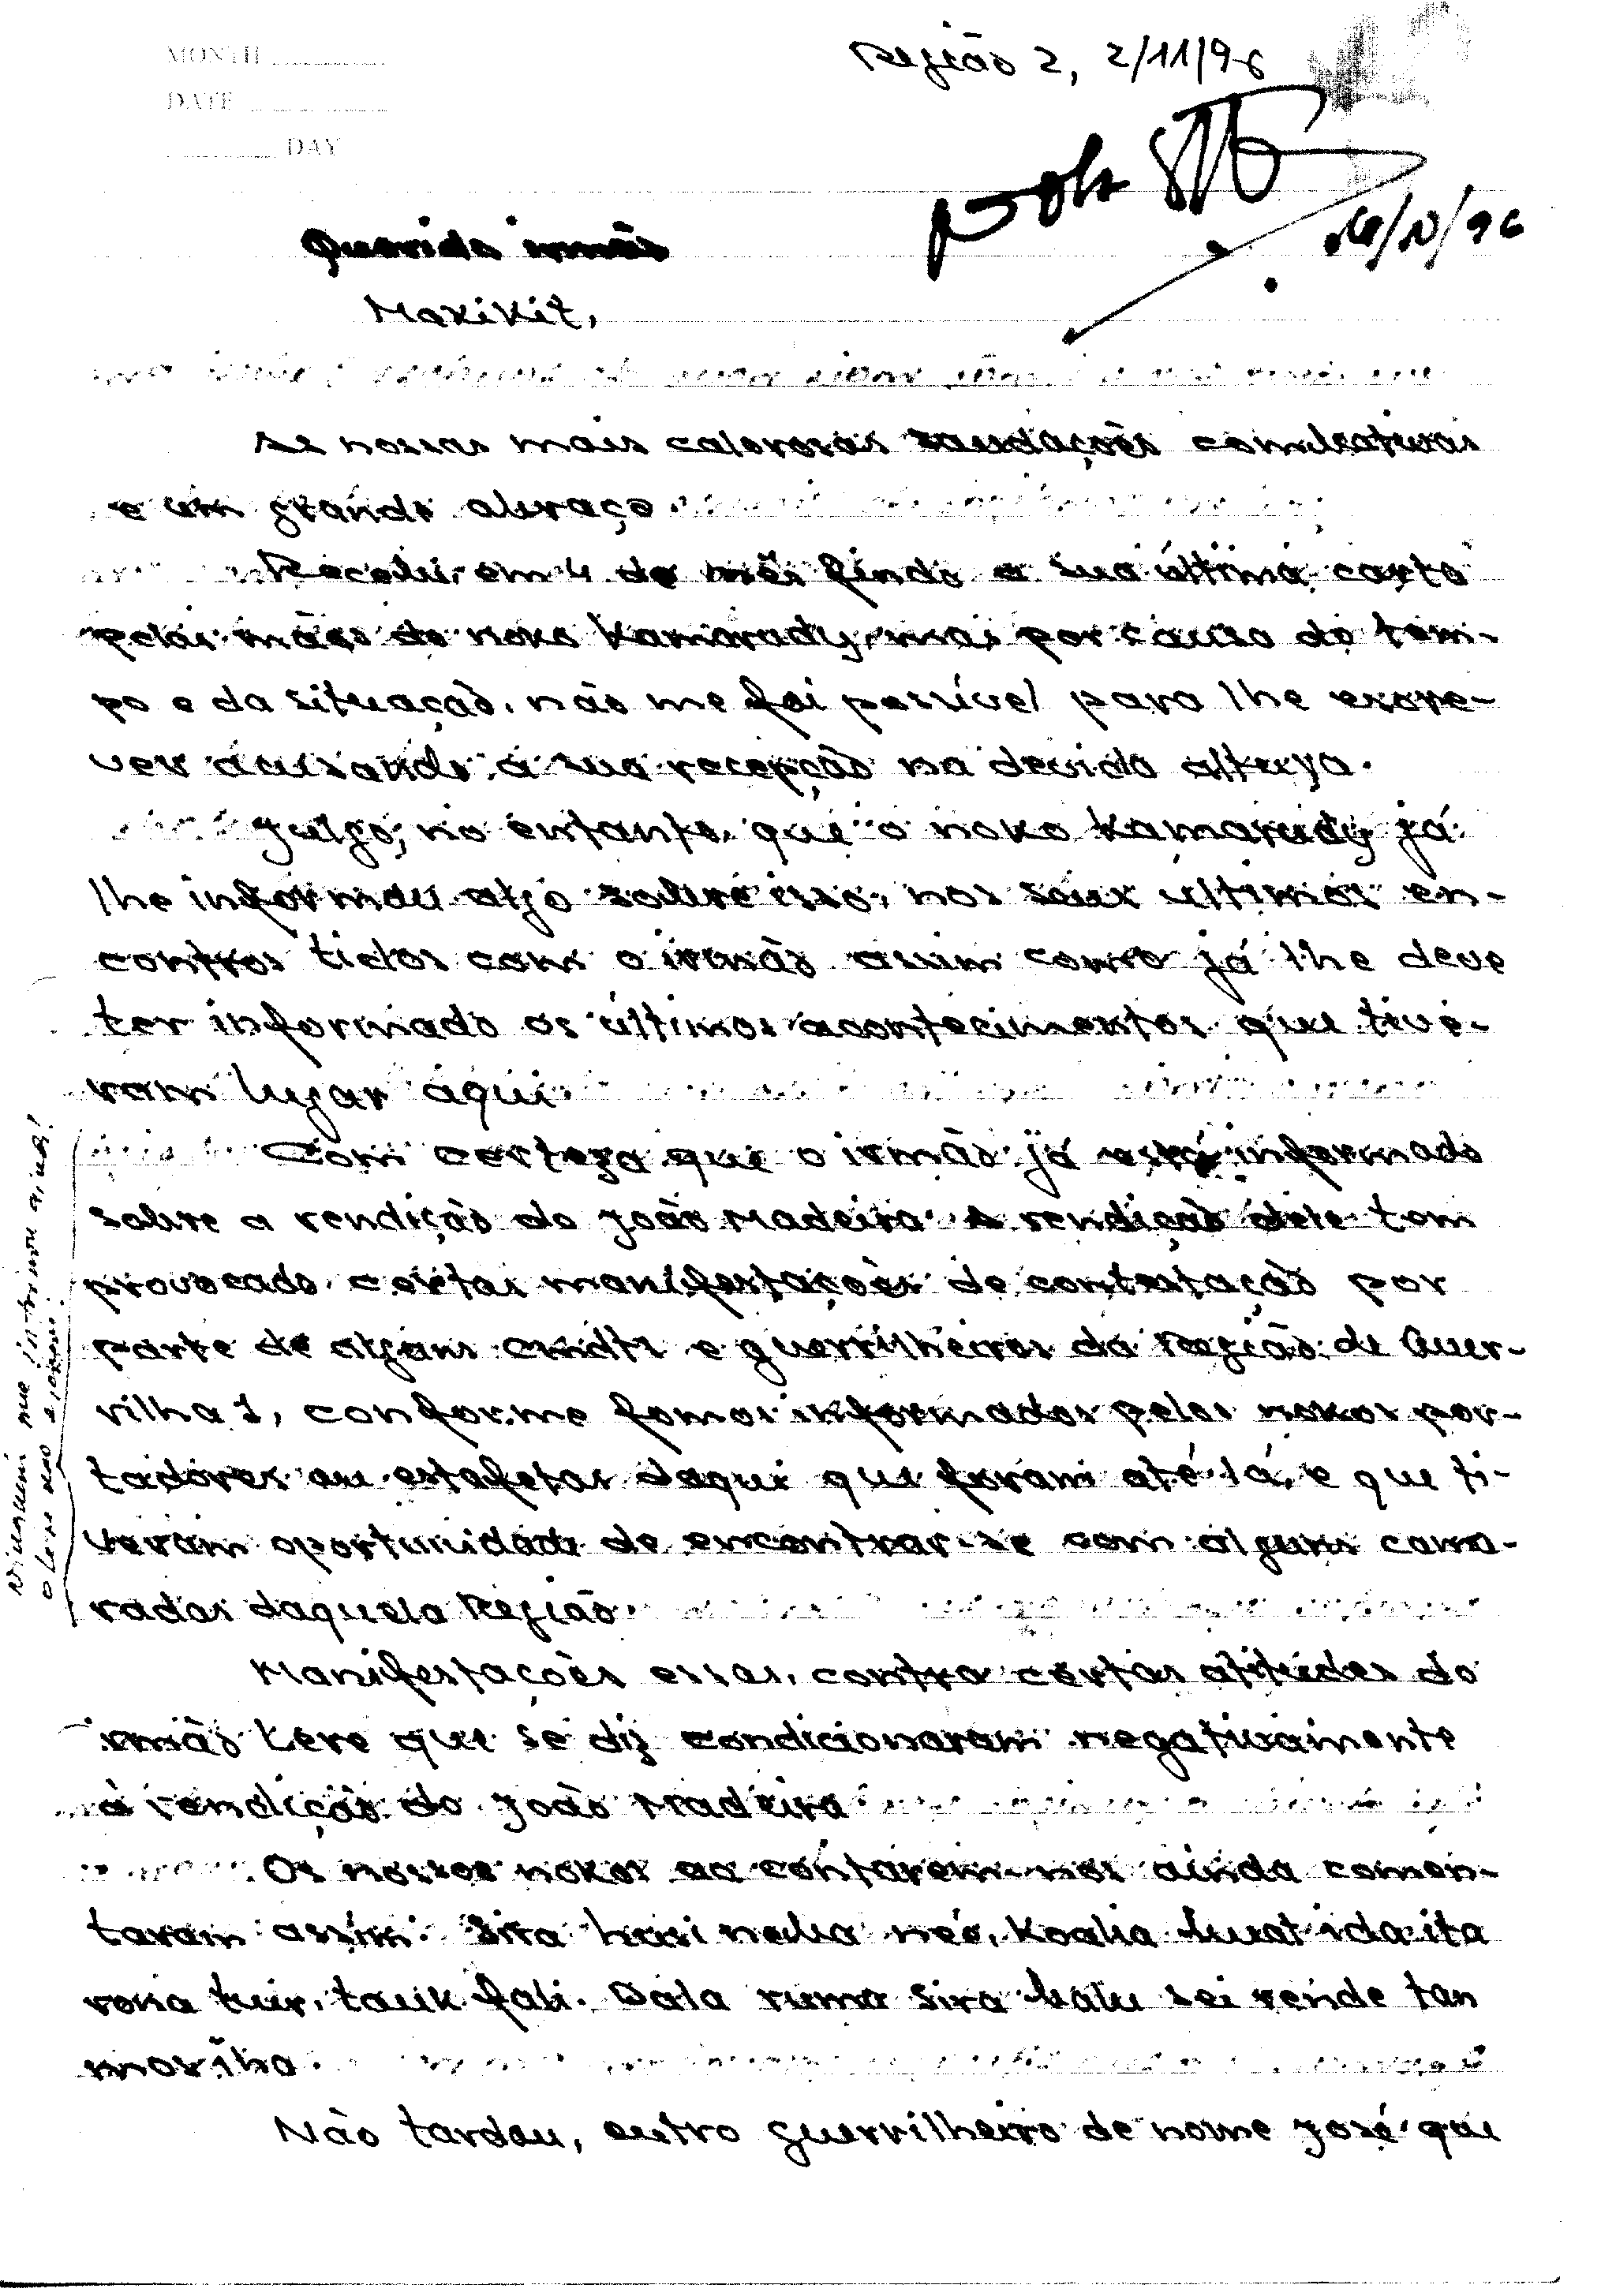 MONTH
DATE
DAY
Região 2, 2/11/96
Querido irmão
Maxikit,
As nossas mais calorosas saudações combativas
e um grande abraço.
Recebi, em 4 do mês findo a sua última carta
pelas mãos do noko Kamarady, mas por causa do tem-
po e da situação, não me foi possível para lhe escre-
ver acusando a sua recepção na devida altura.
Julgo, no entanto, que o noko Kamarady já
lhe informou algo sobre isso, nos seus ultimos en-
contros tidos com o irmão assim como já lhe deve
ter informado os últimos acontecimentos que tive-
ram lugar aqui.
Com certeza que o irmão já está informado
sobre a rendição do João Madeira. A rendição dele tem
provocado certas manifestações de contestação por
parte de alguns cmdts e guerrilheiros da Região de Guer-
rilha 1, conforme fomos informados pelos nokos por-
tadores ou estafetas daqui que foram até lá, e que ti-
veram oportunidade de encontrar-se com alguns cama-
radas daquela Região.
Manifestações essas, contra certas atitudes do
irmão Lere que se diz condicionaram negativamente
à rendição do João Madeira.
Os nossos nokos ao contarem-nos ainda comen-
taram assim: Sira husi neba neé, koalia buat ida ita
rona tuir, tauk fali. Dala ruma sira balu sei rende tan
mosiha.
Não tardou, outro guerrilheiro de nome José que
Ninguem me informou ainda!